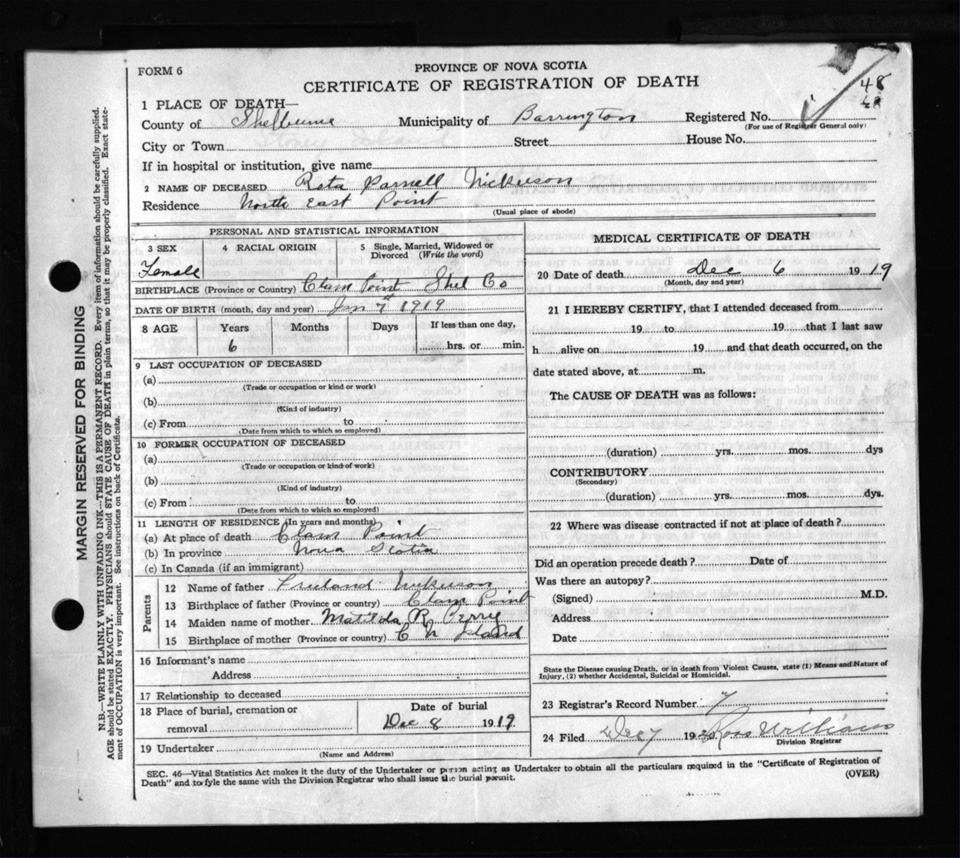 FORM 6
PROVINCE OF NOVA SCOTIA
CERTIFICATE OF REGISTRATION OF DEATH
48
1 PLACE OF DEATH—
County of Shelburne Municipality of Barrington Registered No.
(For use of Registrar General only)
City or Town Street House No.
If in hospital or institution, give name
2 NAME OF DECEASED Reta Parnell Nickerson
Residence North East Point
(Usual place of abode)
PERSONAL AND STATISTICAL INFORMATION
3 SEX 4 RACIAL ORIGIN 5 Single, Married, Widowed or
Divorced (Write the word)
Female
BIRTHPLACE (Province or Country) Clam Point Shel Co
DATE OF BIRTH (month, day and year) 1919
8 AGE Years Months Days If less than one day,
6 hrs. or min.
9 LAST OCCUPATION OF DECEASED
(a)
(Trade or occupation or kind or work)
(b)
(Kind of industry)
(c) From to
(Date from which to which so employed)
10 FORMER OCCUPATION OF DECEASED
(a)
(Trade or occupation or kind of work)
(b)
(Kind of industry)
(c) From to
(Date from which to which so employed)
11 LENGTH OF RESIDENCE (In years and months)
(a) At place of death Clam Point
(b) In province Nova Scotia
(c) In Canada (if an immigrant)
Parents
12 Name of father Freeland Nickerson
13 Birthplace of father (Province or country) Clam Point
14 Maiden name of mother Matilda R Perry
15 Birthplace of mother (Province or country) C N Island
16 Informant's name
Address
17 Relationship to deceased
18 Place of burial, cremation or Date of burial
removal Dec 8 1919
19 Undertaker
(Name and Address)
MEDICAL CERTIFICATE OF DEATH
20 Date of death Dec 6 1919
(Month, day and year)
21 I HEREBY CERTIFY, that I attended deceased from
19 to 19 that I last saw
h alive on 19 and that death occurred, on the
date stated above, at m.
The CAUSE OF DEATH was as follows:
(duration) yrs. mos. dys
CONTRIBUTORY
(Secondary)
(duration) yrs. mos. dys.
22 Where was disease contracted if not at place of death?
Did an operation precede death? Date of
Was there an autopsy?
(Signed) M.D.
Address
Date
State the Disease causing Death, or in death from Violent Causes, state (1) Means and Nature of
Injury, (2) whether Accidental, Suicidal or Homicidal.
23 Registrar's Record Number 7
24 Filed Dec 7 19 Ross Williams
Division Registrar
SEC. 46—Vital Statistics Act makes it the duty of the Undertaker or person acting as Undertaker to obtain all the particulars required in the "Certificate of Registration of
Death" and to fyle the same with the Division Registrar who shall issue the burial permit.
(OVER)
MARGIN RESERVED FOR BINDING
N.B.—WRITE PLAINLY WITH UNFADING INK—THIS IS A PERMANENT RECORD. Every item of information should be carefully supplied.
AGE should be stated EXACTLY. PHYSICIANS should STATE CAUSE OF DEATH in plain terms, so that it may be properly classified. Exact state-
ment of OCCUPATION is very important. See instructions on back of Certificate.